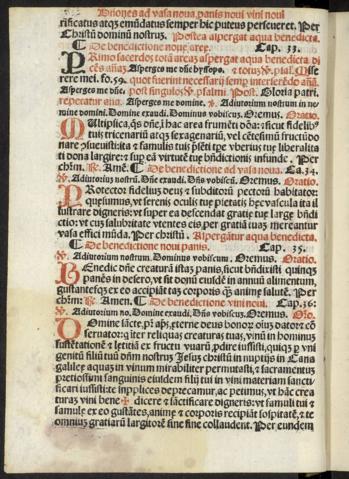 Bñones ad vasa noua, panis noui vini noui
rificatus atqz emūdatus semper hic puteus perseueret. Per
Christū dominū nostruz. Postea aspergat aqua benedicta.
¶ De benedictione noue aree. Cap. 33.
PRimo sacerdos totā areaz aspergat aqua benedicta. di
cēs añaz Asperges me dñe hyssopo. &
totuz ps. Miserere mei. fo. 59. quot fuerint necessarij semp interserēdo añā.
Asperges me dñe. post singulos ps. psalmi. Post, Gloria patri.
repetatur aña. Asperges me domine. ℣. Adiutorium nostrum in no
mine domini. Domine exaudi. Dominus vobiscuz. Oremus. Oratio.
MUltiplica, qs dñe, ī hac area frumēti
tuis tricenariū atqz sexagenariū, vel cētesimū fructū do
nare
ti dona largire: z sup eā virtutē tue bñdictionis infunde. Per
chrm. ℟. Amē. ¶ De benedictione ad vasa noua. Ca. 34.
℣. Adiutoriuz nostrū. Dñe exaudi. Dñs vobiscū. Oremus. Oratio.
PRotector fideliuz deus z subditorū pectorū habitator:
quesumus, vt serenis oculis tue pietatis hec vascula ita il
lustrare digneris: vt super ea descendat gratie tue largē bñdi
ctio: vt cuz salubritate vtentes eis, per gratiā tuaz mereantur
vasa effici mūda. Per christū. Aspergātur aqua benedicta.
¶ De benedictione noui panis. Cap. 35.
℣. Adiutorium nostrum. Dominus vobiscum. Oremus. Oratio.
BEnedic dñe creaturā istaz panis, sicut bñdixisti quinqz
panēs in deserto, vt sit donū eiusdē in annuū alimentum,
gustantesqz ex eo accipiāt taz corporis qz anime salutē. Per
chrm: ℟. Amen. ¶ De benedictione vini noui. Cap. 36:
℣. Adiutorium no. Domine exaudi. Dñs vobiscuz. Oremus. Orō.
DOmine sācte, pr aps, eterne deus honorz oīuz dator z cō
seruator: q iter reliquas creaturas tuas, vinū in hominuz
sustētationē z letitiā ex fructu viuarū, pdire iussisti, quiqz p vni
genitū filiū tuū dñm nostruz Jesuz christū in nuptijs in Cana
galilee aquaz in vinum mirabiliter permutasti, z sacramentuz
pretiosissimi sanguinis eiusdem filij tui in vini materiam sancti
ficari iussisti: te supplices deprecamur, ac petimus, vt hāc crea
turaz vini bene ✠ dicere z sāctificare digneris: vt famuli tui z
famule ex eo gustātes, anime z corporis recipiāt sospitatē, z te
omnium gratiarū largitorē sine fine collaudent. Per eundem